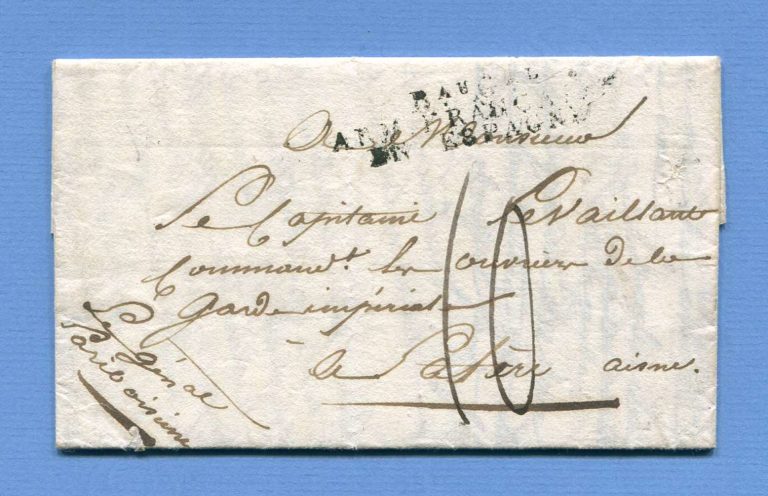 BAU GAL
ARM FRANCAI
EN ESPAGNE
A Monsieur
Le Capitaine Levaillant
Command.t les ouvriers de la
Garde impériale
à Lafère aisne.
10
Le génal
Lariboisiere